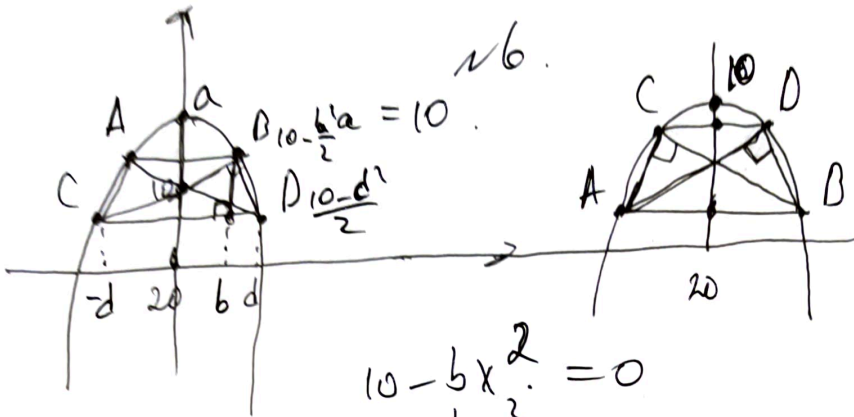 N6.
a
A
B 10-b²a/2 = 10.
C
D 10-d²/2
-d 20 b d
10
C D
A B
20
10 - bx² = 0